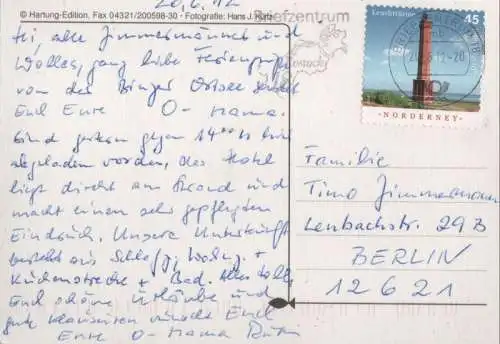 20.6.12
© Hartung-Edition, Fax 04321/200598-30 - Fotografie: Hans J. Kurtz
Hei, alle Zimmermänner und
ganz liebe Feriengrüße
von der Ostsee sendet
Euch Eure O-Mama.
Sind gestern gegen 14°° hier
abgeladen worden, das Hotel
liegt direkt am Strand und
macht einen sehr gepflegten
Eindruck. Unsere Unterkunft
besteht aus Schlafz., Wohnz. +
Küchenstrecke + Bad. Alles tolle,
Euch schöne Urlaube und
gute Klausuren wünscht Euch
Eure O-Mama
Briefzentrum
Leuchttürme
45
NORDERNEY
Familie
Timo Zimmermann
Lenbachstr. 29B
BERLIN
12621